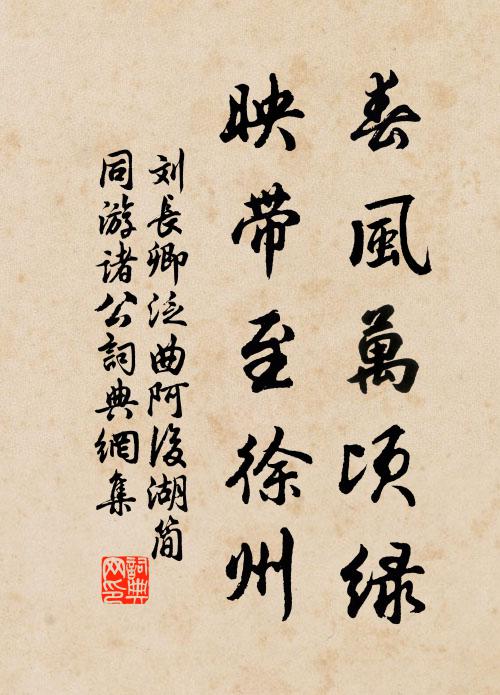 春風萬頃綠
映帶至徐州
刘長卿泛曲阿後湖简
同游諸公詞典網集
詞典
网印